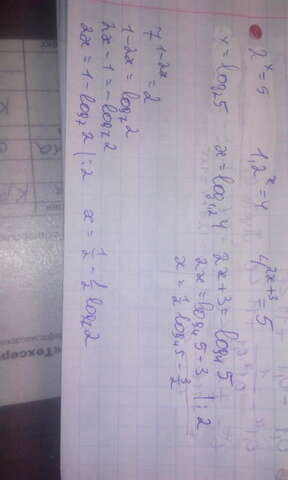 2ˣ = 5    1,2ˣ = 4    4²ˣ⁺³ = 5
x = log₂5    x = log₁,₂4    2x + 3 = log₄5
2x = log₄5 - 3 | : 2
x = ½ log₄5 - 3/2
7¹⁻²ˣ = 2
1 - 2x = log₇2
2x - 1 = -log₇2
2x = 1 - log₇2 | : 2    x = ½ - ½ log₇2